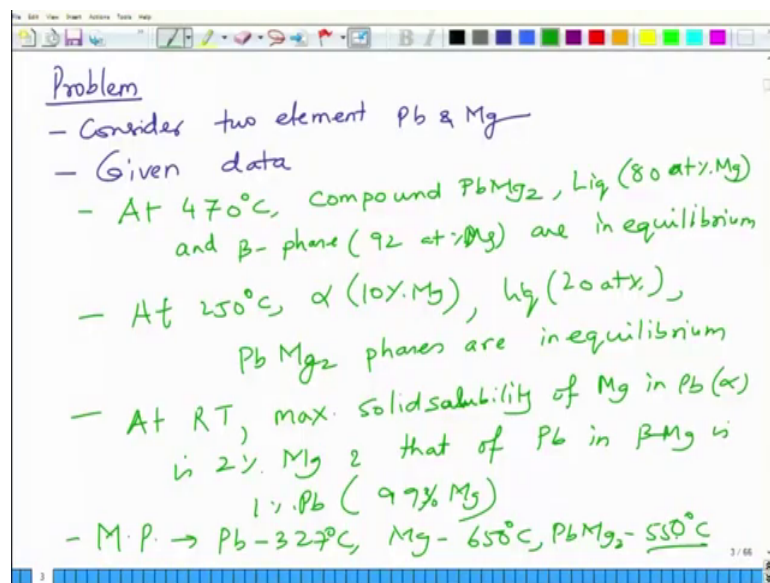 File Edit View Insert Actions Tools Help
Problem
- Consider two element Pb & Mg
- Given data
- At 470°C, compound PbMg₂, Liq (80 at% Mg)
and β-phase (92 at% Mg) are in equilibrium
- At 250°C, α (10% Mg), liq (20 at%),
PbMg₂ phases are in equilibrium
- At RT, max. solid solubility of Mg in Pb (α)
is 2% Mg & that of Pb in β-Mg is
1% Pb (99% Mg)
- M.P. → Pb - 327°C, Mg - 650°C, PbMg₂ - 550°C
3 / 66
3